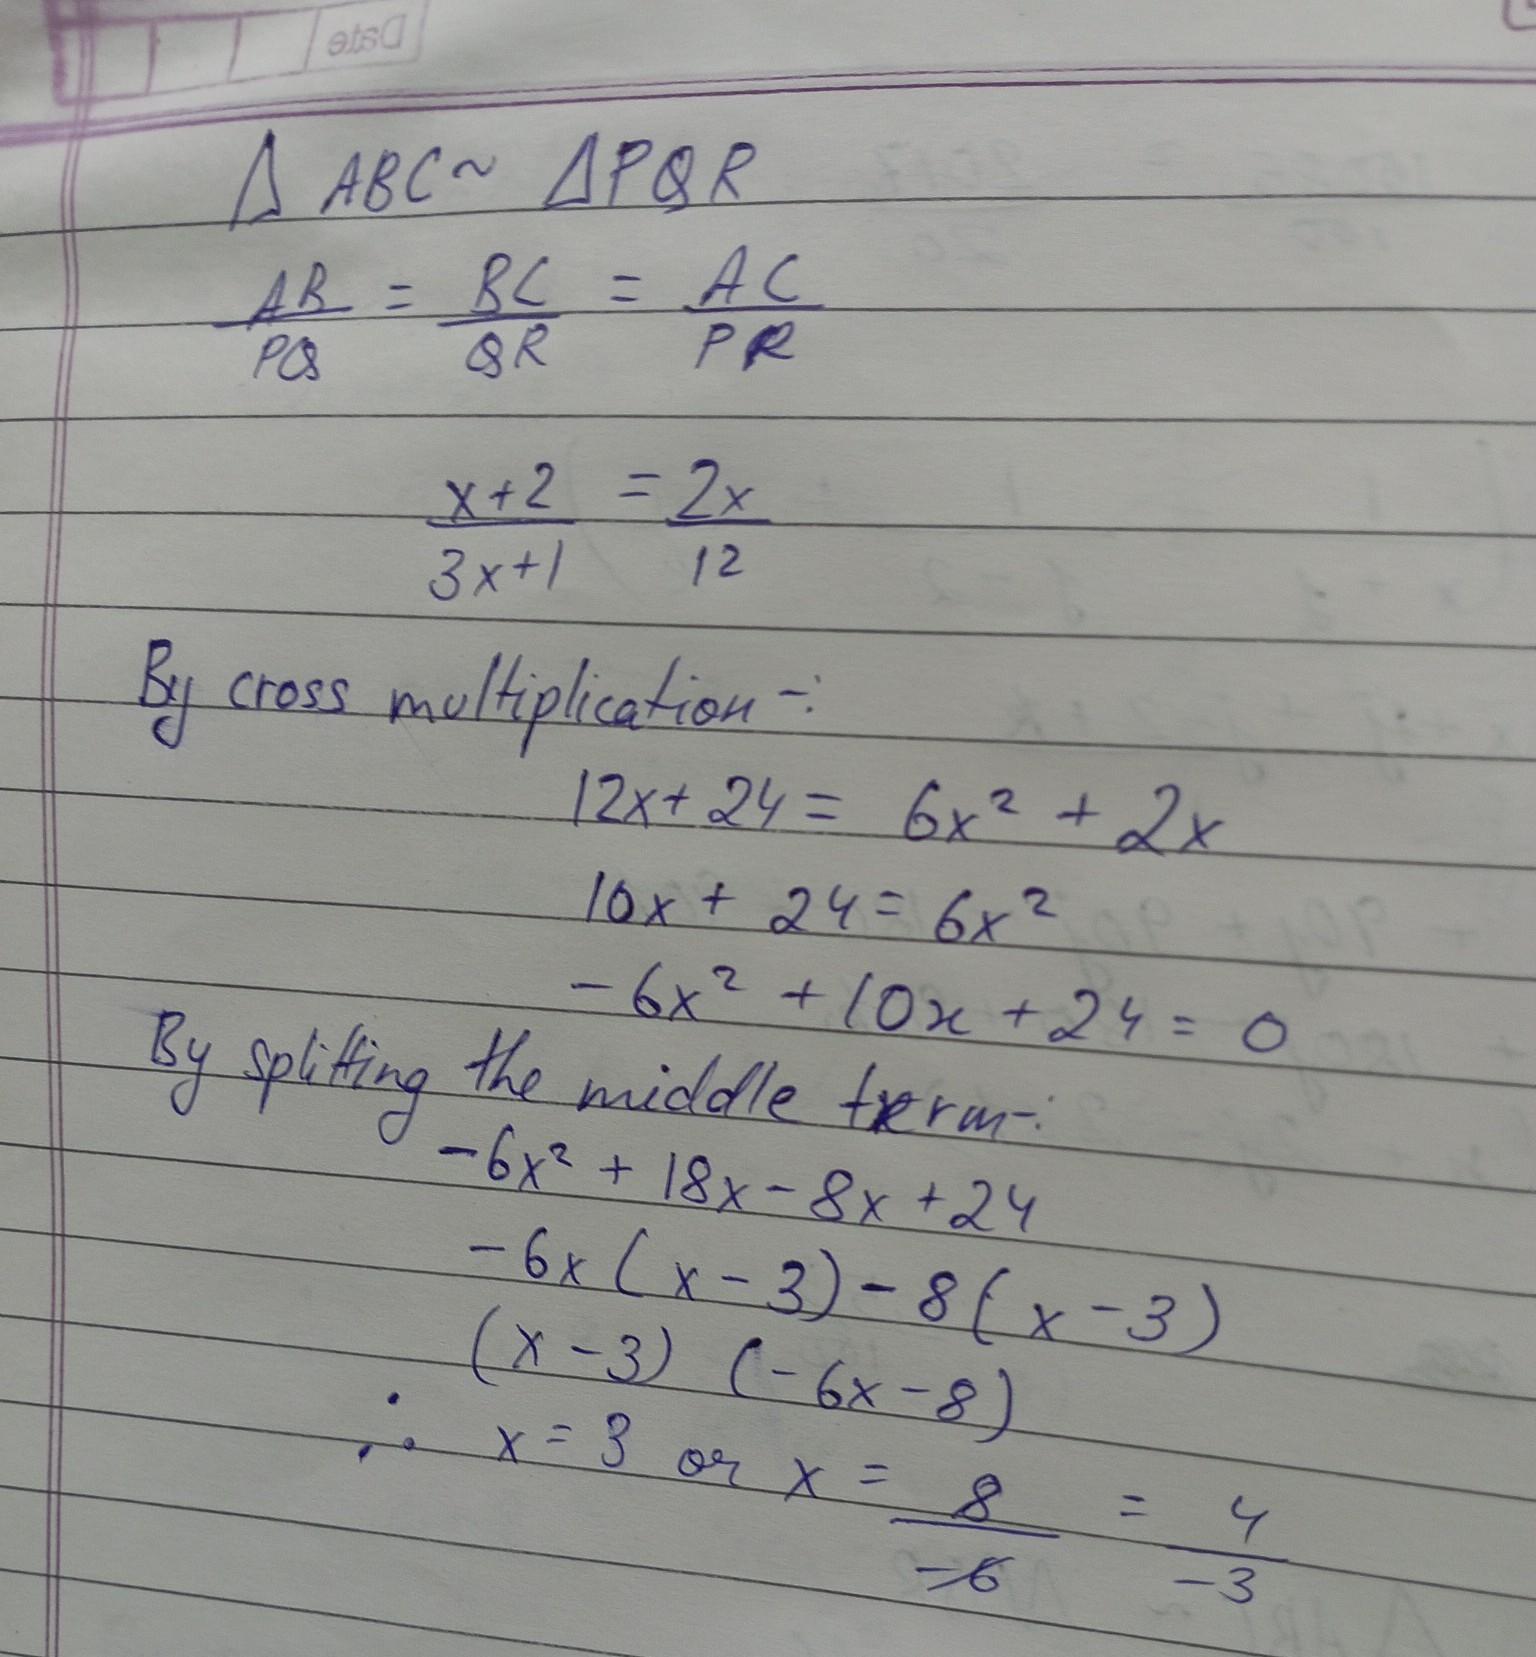 Date
Δ ABC ~ ΔPQR
AB/PQ = BC/QR = AC/PR
x+2/3x+1 = 2x/12
By cross multiplication -:
12x + 24 = 6x² + 2x
10x + 24 = 6x²
-6x² + 10x + 24 = 0
By splitting the middle term -:
-6x² + 18x - 8x + 24
-6x (x - 3) - 8 (x - 3)
(x - 3) (-6x - 8)
∴ x = 3 or x = 8/-6 = 4/-3